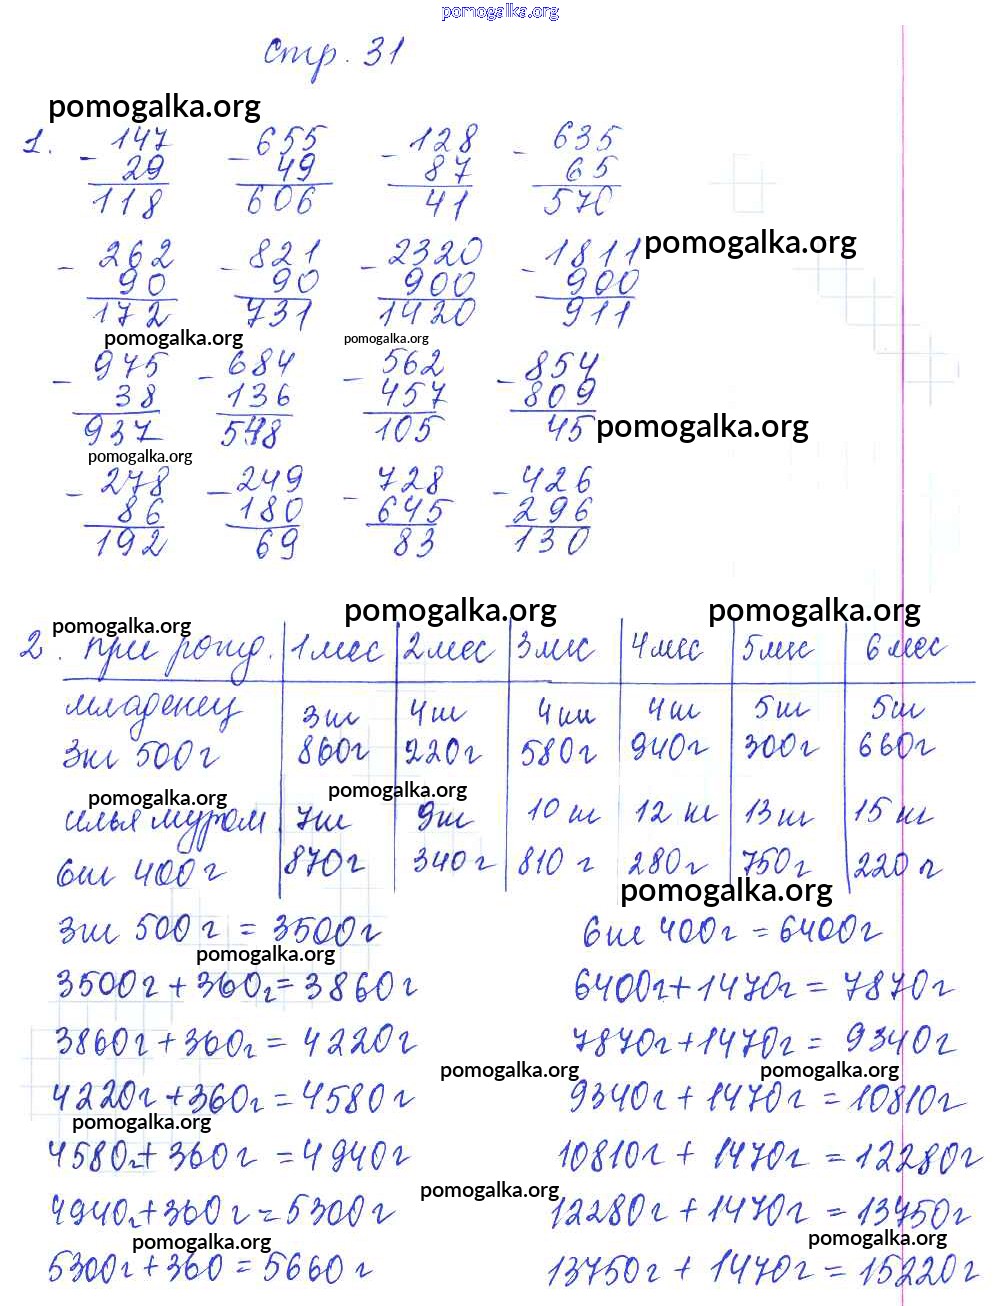 pomogalka.org
стр. 31
pomogalka.org
1. - 147 - 655 - 128 - 635
29 49 87 65
118 606 41 570
pomogalka.org
- 262 - 821 - 2320 - 1811
90 90 900 900
172 731 1420 911
pomogalka.org pomogalka.org
- 975 - 684 - 562 - 854
38 136 457 809
937 548 105 45
pomogalka.org
pomogalka.org
- 278 - 249 - 728 - 426
86 180 645 296
192 69 83 130
pomogalka.org pomogalka.org
pomogalka.org
2. при рожд. 1 мес 2 мес 3 мес 4 мес 5 мес 6 мес
младенец 3кг 4кг 4кг 4кг 5кг 5кг
3кг 500г 860г 220г 580г 940г 300г 660г
pomogalka.org pomogalka.org
илья муром 7кг 9кг 10 кг 12 кг 13кг 15 кг
6кг 400г 870г 340г 810 г 280г 750г 220 г
pomogalka.org
3кг 500г = 3500г 6кг 400г = 6400г
pomogalka.org
3500г + 360г = 3860г 6400г + 1470г = 7870г
3860г + 360г = 4220г 7870г + 1470г = 9340г
pomogalka.org pomogalka.org
4220г + 360г = 4580г 9340г + 1470г = 10810г
pomogalka.org
4580г + 360г = 4940г 10810г + 1470г = 12280г
pomogalka.org
4940г + 360г = 5300г 12280г + 1470г = 13750г
pomogalka.org pomogalka.org
5300г + 360 = 5660г 13750г + 1470г = 15220г